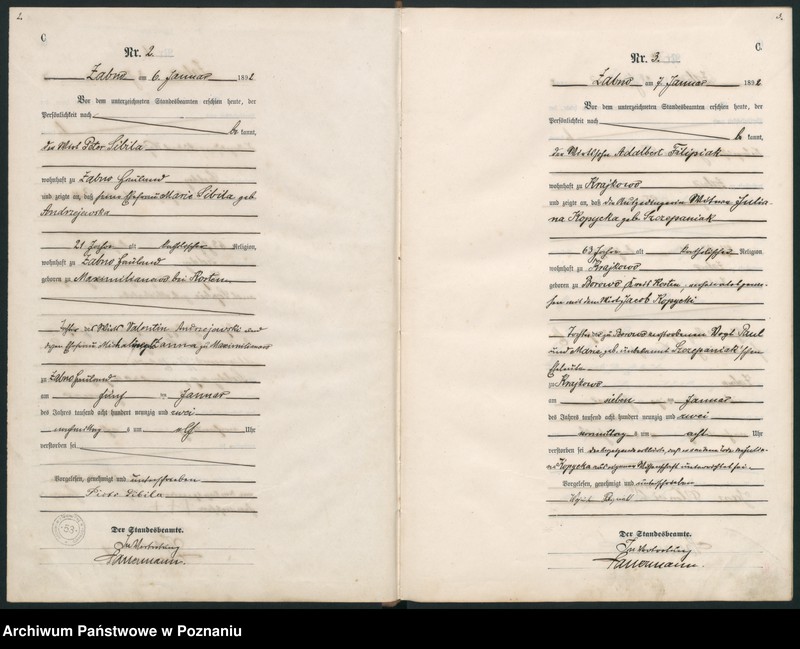 2.
C
Nr. 2.
Zabno am 6. Januar 1892
Vor dem unterzeichneten Standesbeamten erschien heute, der
Persönlichkeit nach
be kannt,
der Wirt Peter Sibila
wohnhaft zu Zabno Hauland
und zeigte an, daß seine Ehefrau Marie Sibila geb.
Andrzejewska
21 Jahre alt katholischer Religion,
wohnhaft zu Zabno Hauland
geboren zu Maximilianowo bei Kosten
Tochter des Wirts Valentin Andrzejewski und
dessen Ehefrau zu Maximilianowo
zu Zabno Hauland
am fünf ten Januar
des Jahres tausend acht hundert neunzig und zwei
nachmittag s um elf Uhr
verstorben sei
Vorgelesen, genehmigt und unterschrieben
Piotr Sibila
Der Standesbeamte.
In Vertretung
53
3.
C.
Nr. 3.
Zabno am 7. Januar 1892
Vor dem unterzeichneten Standesbeamten erschien heute, der
Persönlichkeit nach
be kannt,
der Adalbert Filipiak
wohnhaft zu Krajkowo
und zeigte an, daß die Auszüglerin Witwe Julia-
na Kopycka geb. Szczepaniak
63 Jahre alt katholischer Religion
wohnhaft zu Krajkowo
geboren zu Borowo Kreis Kosten, verheiratet gewe-
sen mit dem Wirt Jacob Kopycki
Tochter der zu Borowo verstorbenen Vogt Paul
und Marie geb. unbekannt Szczepaniak'schen
Eheleute
zu Krajkowo
am sieben ten Januar
des Jahres tausend acht hundert neunzig und zwei
vormittag s um acht Uhr
verstorben sei
Kopycka aus eigener Wissenschaft unterrichtet sei
Vorgelesen, genehmigt und unterschrieben
Der Standesbeamte.
In Vertretung
Archiwum Państwowe w Poznaniu